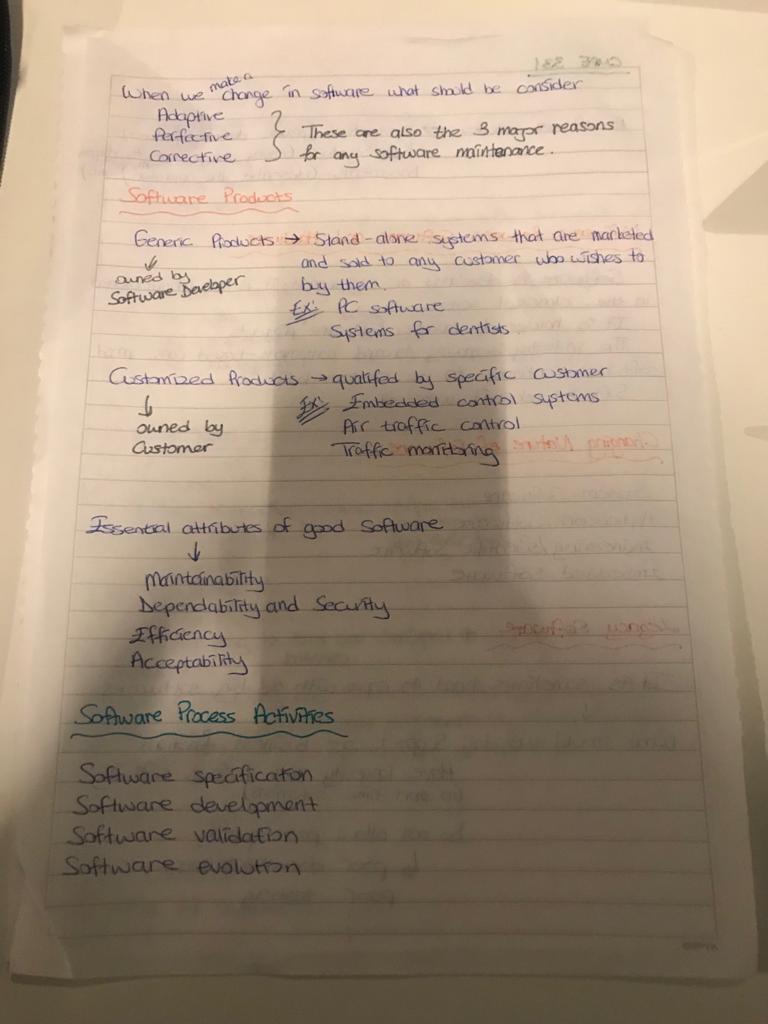 When we make a change in software what should be consider
Adaptive
Perfective
Corrective
These are also the 3 major reasons
for any software maintenance.
Software Products
Generic Products → Stand-alone systems that are marketed
and sold to any customer who wishes to
buy them.
owned by
Software Developer
Ex: PC software
Systems for dentists
Customized Products → qualifed by specific customer
Ex: Embedded control systems
Air traffic control
Traffic monitoring
owned by
Customer
Essential attributes of good software
Maintainability
Dependability and Security
Efficiency
Acceptability
Software Process Activities
Software specification
Software development
Software validation
Software evolution